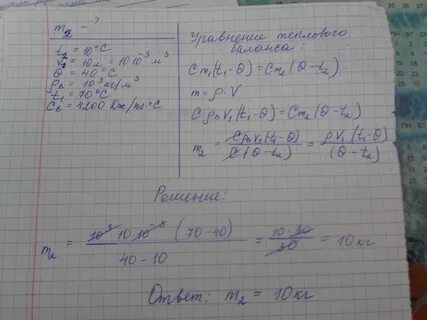 m₂ - ?
t₂ = 10°C
V₁ = 10 л = 10·10⁻³ м³
θ = 40°C
ρв = 10³ кг/м³
t₁ = 70°C
Cв = 4200 Дж/кг·°C
Уравнение теплового
баланса:
Cm₁(t₁-θ) = Cm₂(θ-t₂)
m = ρ·V
CρвV₁(t₁-θ) = Cm₂(θ-t₂)
m₂ = CρвV₁(t₁-θ) / C(θ-t₂) = ρV₁(t₁-θ) / (θ-t₂)
Решение:
m₂ = 10³·10·10⁻³(70-40) / 40-10 = 10·30 / 30 = 10 кг
Ответ: m₂ = 10 кг